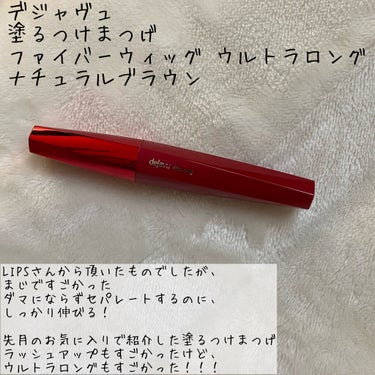 デジャヴュ
塗るつけまつげ
ファイバーウィッグ ウルトラロング
ナチュラルブラウン
dejavu
LIPSさんから頂いたものでしたが、
まじですごかった
ダマにならずセパレートするのに、
しっかり伸びる！
先月のお気に入りで紹介した塗るつけまつげ
ラッシュアップもすごかったけど、
ウルトラロングもすごかった！！！